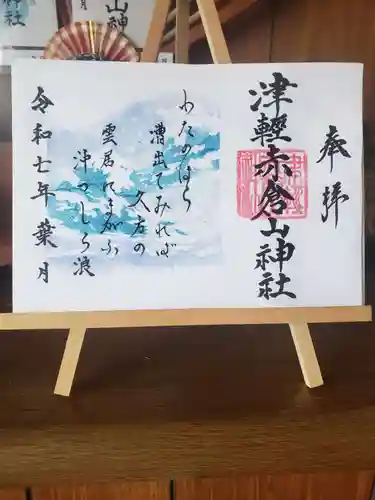 奉拝
津軽赤倉山神社
わたのはら
漕出てみれば
久方の
雲居にまがふ
沖つしら浪
令和七年 葉月